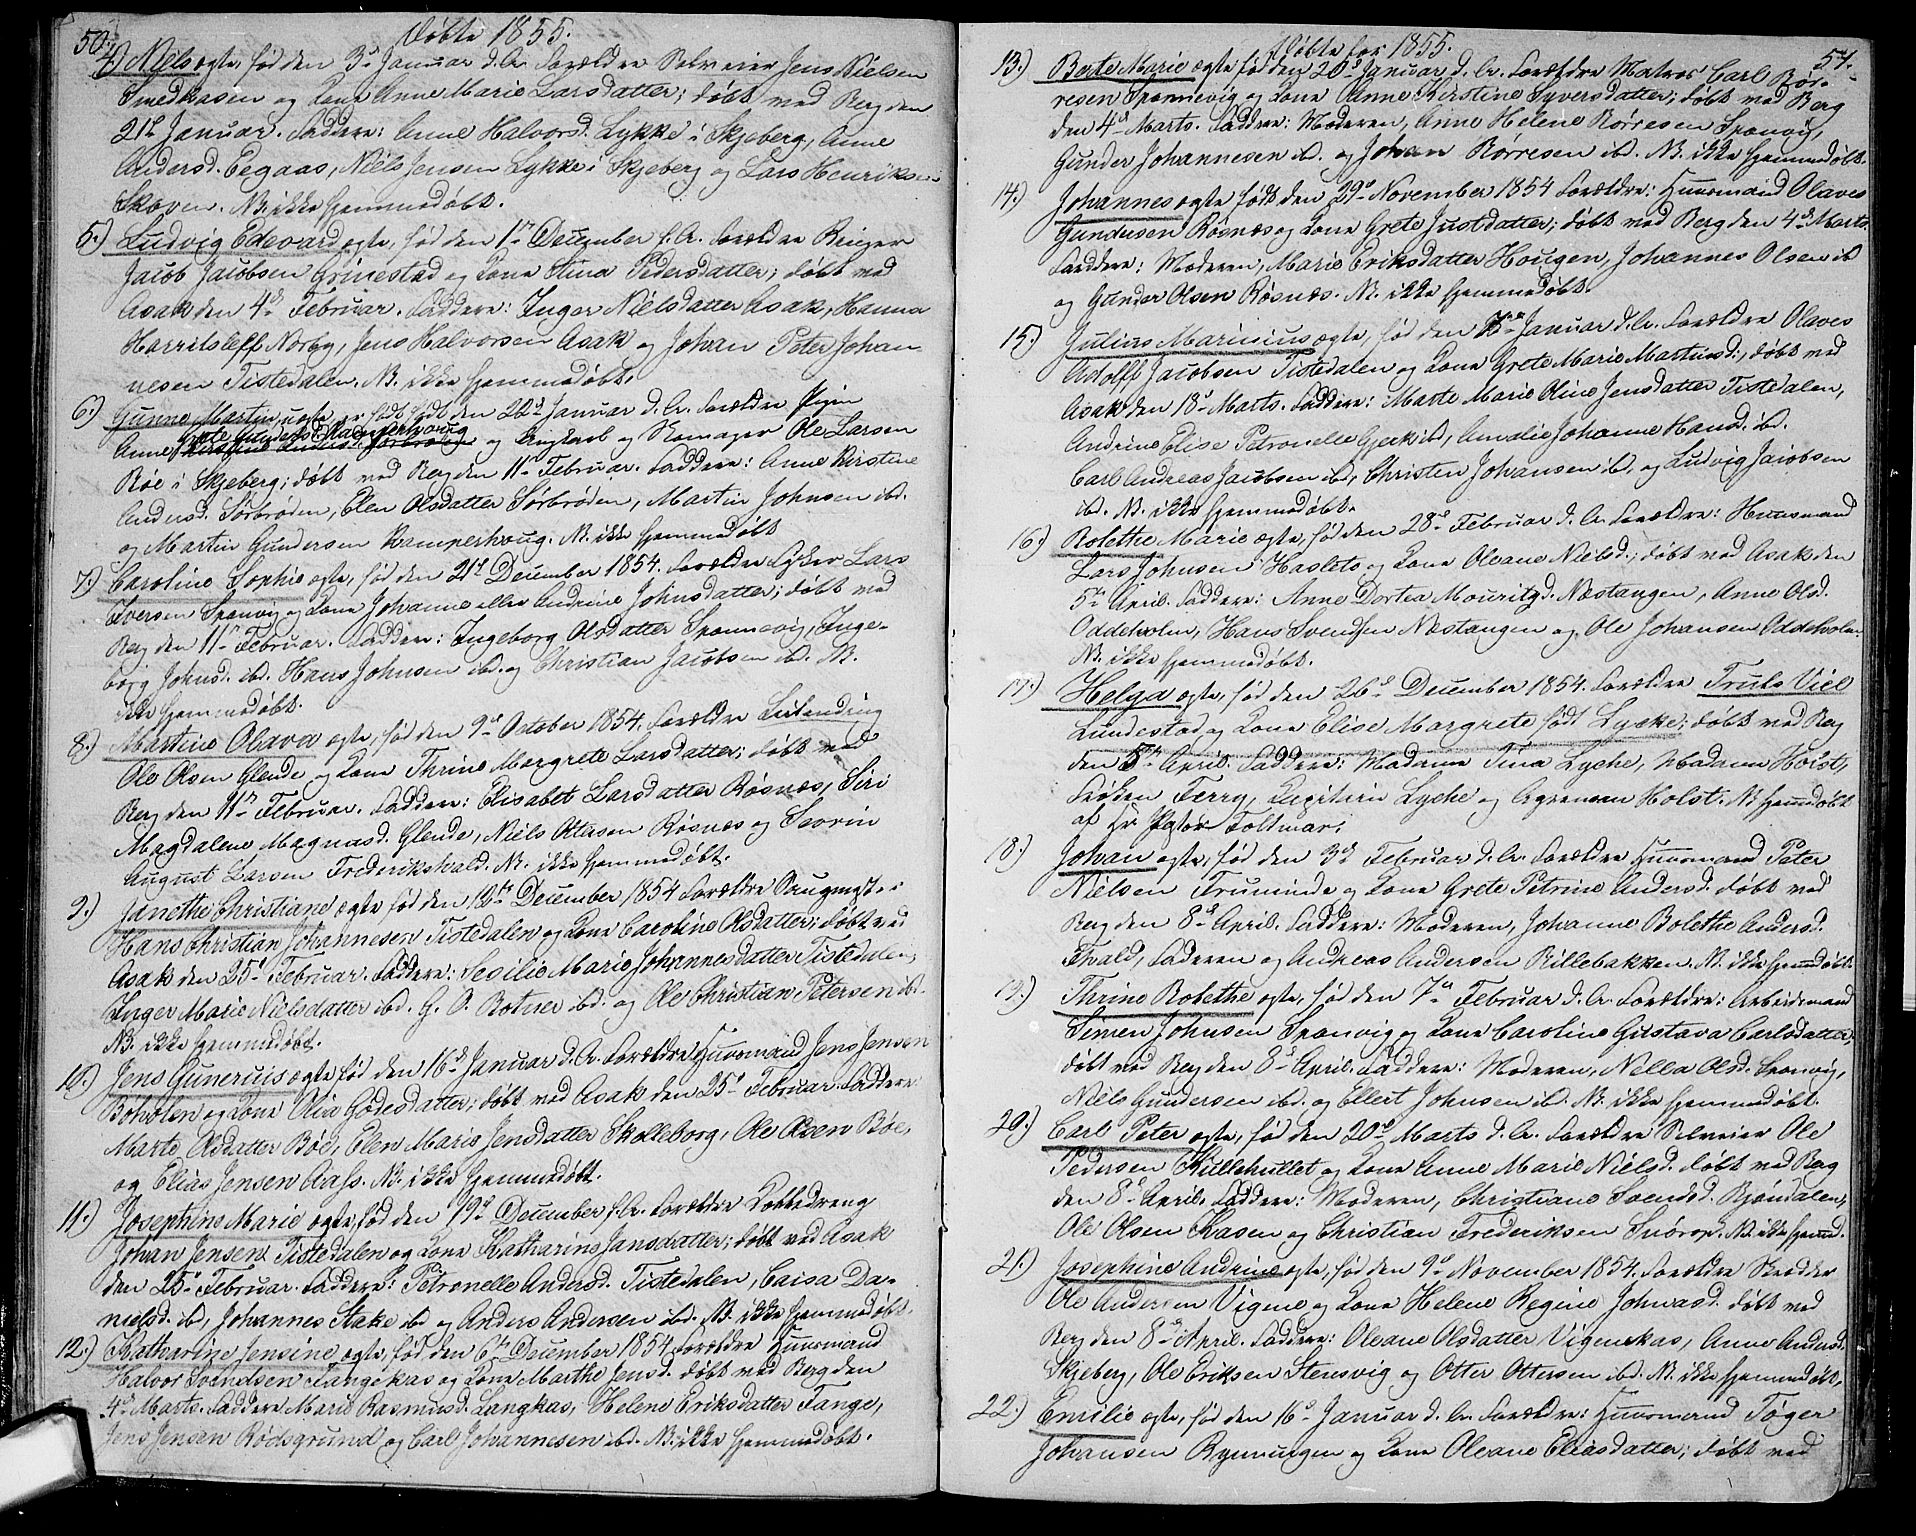 50.
Döbte 1855.
4) Niels ægte, fød den 3d Januar d. A. Forældre Selveier Jens Nielsen
Smedkasen og Kone Anne Marie Larsdatter; döbt ved Berg den
21d Januar. Faddere: Anne Halvorsd. Lykke i Skjeberg, Anne
Andersd. Eegaas, Niels Jensen Lykke i Skjeberg og Lars Henriksen
Skoven. NB. ikke hjemmedöbt.
5.) Ludvig Edevard ægte, fød den 1ste December f. A. Forældre
Jacob Jacobsen Grinestad og Kone Stina Pedersdatter; döbt ved
Asak den 4de Februar. Faddere: Inger Nielsdatter Asak, Hanna
Harritsleff Norby, Jens Halvorsen Asak og Johan Peter Johan-
nesen Tistedalen. NB. ikke hjemmedöbt.
6.) Gunne Martin, uægte, er født den 22d Januar d. A. Forældre Pigen
Grete Gundersd. Kamperhoug
Anne Kirstine Andersd. Sørbrøden og Ungkarl og Skomager Ole Larsen
Böe i Skjeberg; döbt ved Berg den 11te Februar. Faddere: Anne Kirstine
Andersd. Sørbrøden, Elen Olsdatter Sørbrøden, Martin Johnsen ibd.
og Martin Gundersen Kamperhoug. NB. ikke hjemmedöbt
7.) Caroline Sophie ægte, fød den 21d December 1854. Forældre Lars
Iversen Sponvig og Kone Johanne eller Andrine Johnsdatter; döbt ved
Berg den 11te Februar. Faddere: Ingeborg Olsdatter Sponnevig, Inge-
borg Johnsd. ibd. Hans Johnsen ibd. og Christian Jacobsen ibd. NB.
ikke hjemmedöbt.
8.) Martine Olava ægte, fød den 9de October 1854. Forældre
Ole Olsen Glende og Kone Thrine Margrete Larsdatter; döbt ved
Berg den 11te Februar. Faddere: Elisabet Larsdatter Røsnæs, Siri
Magdalene Magnusd. Glende, Niels Ottersen Røsnæs og Sevrin
August Larsen Frederikshald. NB. ikke hjemmedöbt.
9.) Janethe Christiane ægte fød den 10de December 1854 Forældre Saugmest.
Hans Christian Johannesen Tistedalen og Kone Caroline Olsdatter; döbt ved
Asak den 25d Februar. Faddere: Secilie Marie Johannesdatter Tistedalen,
Inger Marie Nielsdatter ibd. G. O. Rotner ibd. og Ole Christian Petersen ibd.
NB. ikke hjemmedöbt.
10.) Jens Guneruis ægte fød den 16de Januar d. A. Forældre Huusmand Jens Jensen
Böholen og Kone Olia Godesdatter; döbt ved Asak den 25d Februar. Faddere
Marte Olsdatter Böe, Elen Marie Jensdatter Skolleborg, Ole Olsen Böe,
og Elias Jensen Aass. NB. ikke hjemmedöbt.
11.) Josephine Marie ægte, fød den 19d December f. A. Forældre Lokkedreng
Johan Jensen Tistedalen og Kone Katharine Jansdatter; döbt ved Asak
den 25d Februar. Faddere: Petronelle Andersd. Tistedalen, Caisa Da-
nielsd. ibd, Johannes Stake ibd og Anders Andersen ibd. NB. ikke hjemmedöbt.
12.) Katharine Jensine ægte, fød den 6te December 1854 Forældre Huusmand
Halvor Svendsen Tangekas og Kone Marthe Jensd. döbt ved Berg den
4de Marts. Faddere Marie Rasmusd. Langkas, Helene Eriksdatter Tange,
Jens Jensen Rødsgrund og Carl Johannesen ibd. NB. ikke hjemmedöbt.
51.
Döbte for 1855.
13.) Berte Marie ægte fød den 20d Januar d. A. Forældre Matros Carl Bör-
resen Sponnevig og Kone Anne Kirstine Syversdatter; döbt ved Berg
den 4de Marts. Faddere: Moderen, Anne Helene Börresen Sponvig,
Gunder Johannesen ibd. og Johan Börresen ibd. NB. ikke hjemmedöbt.
14.) Johannes ægte født den 29d November 1854 Forældre: Huusmand Olaves
Gundersen Røsnæs og Kone Grete Justdatter; döbt ved Berg den 4de Marts.
Faddere: Moderen, Marie Eriksdatter Hougen, Johannes Olsen ibd
og Gunder Olsen Røsnæs. NB. ikke hjemmedöbt.
15.) Julius Marinius ægte, fød den Januar d. A. Forældre Olaves
Adolff Jacobsen Tistedalen og Kone Grete Marie Martinsd; döbt ved
Asak den 18d Marts. Faddere: Marte Marie Oline Jensdatter Tistedalen,
Andrine Elise Petronelle Gjerk ibd, Amalie Johanne Hansd. ibd.
Carl Andreas Jacobsen ibd, Christen Johansen ibd, og Ludvig Jacobsen
ibd. NB. ikke hjemmedöbt.
16.) Bolethe Marie ægte, fød den 28d Februar d. A. Forældre: Huusmand
Lars Johnsen Haslets og Kone Oleane Nielsd; döbt ved Asak den
5te April. Faddere: Anne Dortea Mouritzd. Næstangen, Anne Olsd.
Oddeholm, Hans Svendsen Næstangen og Ole Johansen Oddeholm.
NB. ikke hjemmedöbt.
17.) Helga ægte, fød den 26d December 1854. Forældre Truls Viel
Lundestad og Kone Elise Margrete født Lycke; döbt ved Berg
den 5te April. Faddere: Madame Tina Lyche, Madam Holst,
Frøken Ferry, Capitein Lyche og Holst. NB. hjemdöbt
af Hr Pastor Foltmar.
18.) Johan ægte, fød den 3d Februar d. A. Forældre Huusmand Peter
Nielsen Truminde og Kone Grete Petrine Andersd. döbt ved
Berg den 8d April. Faddere: Moderen, Johanne Bolethe Andersd.
Fvald, Faderen og Andreas Andersen Billebakken. NB. ikke hjemdöbt.
19.) Thrine Bolethe ægte, fød den 7de Februar d. A. Forældre: Arbeidsmand
Simen Johnsen Sponvig og Kone Caroline Gustava Carlsdatter;
döbt ved Berg den 8d April. Faddere: Moderen, Nella Olsd. Sponvig,
Niels Gundersen ibd. og Ellert Johnsen ibd. NB. ikke hjemmedöbt.
20.) Carl Peter ægte, fød den 20d Marts d. A. Forældre Selveier Ole
Pedersen Kullehullet og Kone Anne Marie Nielsd. döbt ved Berg
den 8d April. Faddere: Moderen, Christiane Svendsd. Bjöndalen,
Ole Olsen Kasen og Christian Frederiksen Snörop. NB. ikke hjemd.
21.) Josephine Andrine ægte, fød den 9d November 1854. Forældre Skrædder
Ole Andersen Vigene og Kone Helene Regine Johnasd. döbt ved
Berg den 8d April. Faddere: Oleane Olsdatter Vigenskas, Anne Andersd.
Skjeberg, Ole Eriksen Stensvig og Otter Ottersen ibd. NB. ikke hjemmedöbt.
22.) Emilie ægte, fød den 16d Januar d. A. Forældre: Huusmand Töger
Johansen Bymningen og Kone Oleane Eliasdatter; döbt ved